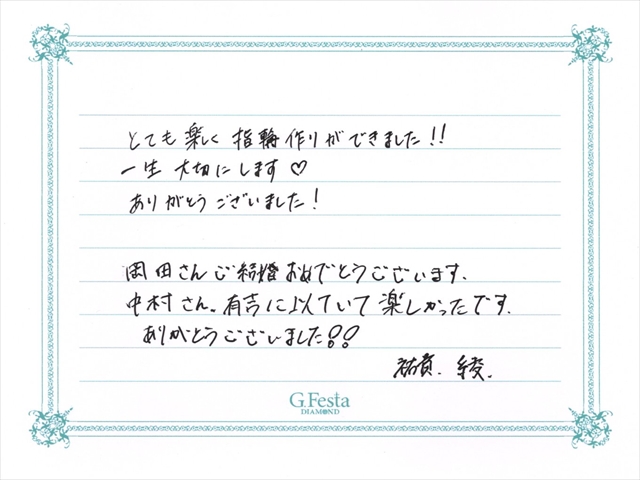 とても楽しく指輪作りができました!!
一生大切にします♡
ありがとうございました!
岡田さんご結婚おめでとうございます.
中村さん。有吉に似ていて楽しかったです.
ありがとうございました!!
祐貴. 綾.
G.Festa
DIAMOND